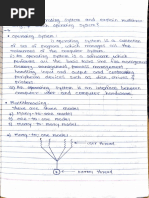 operating system and explain multithrea
the operating system?
→
* Operating System :
operating system is a collection
of set of programs, which manages all the
resources of the computer system.
i) An operating system is a software which performs
all the basic tasks like file management,
memory management, process management,
handling input and output and controlling
peripheral devices such as disk drives &
printers.
ii) An operating system is an interface between
computer user and computer hardware.
* Multithreading
There are three models
1) Many-to-one model
2) One-to-one model
3) Many-to-many model
1) Many-to-one model
user thread
K
kernel thread